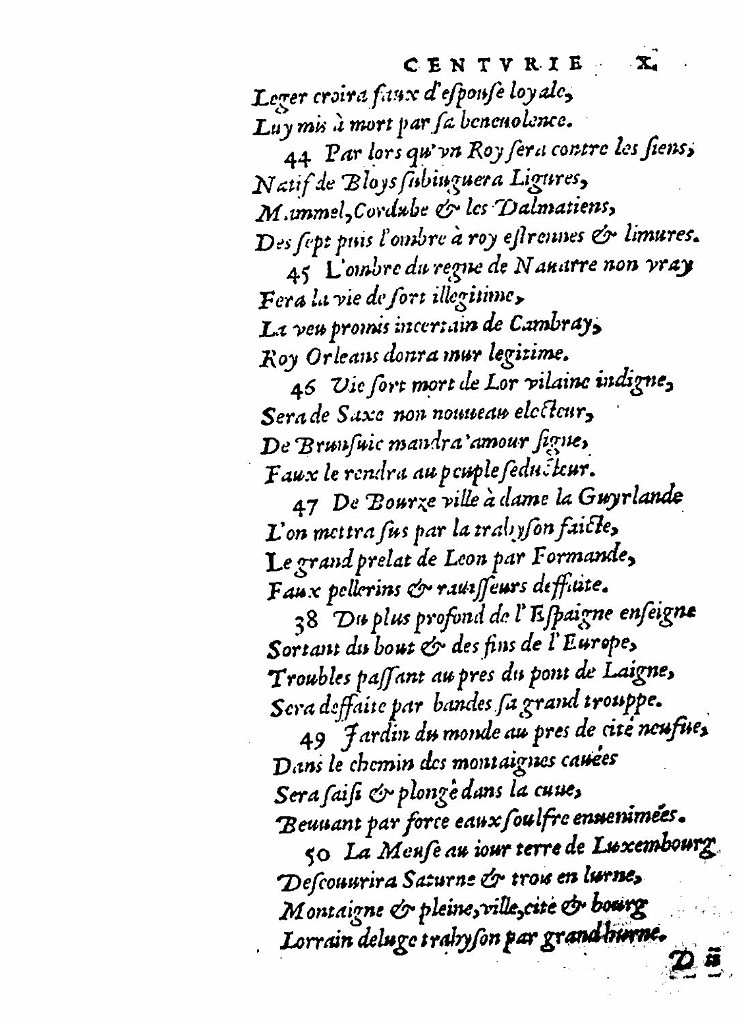 CENTVRIE X.
Leger croira faux d'espouse loyale,
Luy mis à mort par sa beneuolence.
44 Par lors qu'vn Roy sera contre les siens,
Natif de Bloys subiuguera Ligures,
Mammel, Cordube & les Dalmatiens,
Des sept puis l'ombre à roy estrennes & limures.
45 L'ombre du regne de Nauarre non vray
Fera la vie de sort illegitime,
La veu promis incertain de Cambray,
Roy Orleans donra mur legitime.
46 Vie sort mort de Lor vilaine indigne,
Sera de Saxe non nouueau electeur,
De Brunsuic mandra d'amour signe,
Faux le rendra au peuple seducteur.
47 De Bourze ville à dame la Guyrlande
L'on mettra sus par la trahyson faicte,
Le grand prelat de Leon par Formande,
Faux pellerins & rauisseurs deffaite.
38 Du plus profond de l'Espaigne enseigne
Sortant du bout & des fins de l'Europe,
Troubles passant au pres du pont de Laigne,
Sera deffaite par bandes sa grand trouppe.
49 Jardin du monde au pres de cité neufue,
Dans le chemin des montaignes cauées
Sera saisi & plongé dans la cuue,
Beuuant par force eaux soulfre enuenimées.
50 La Meuse au iour terre de Luxembourg
Descouurira Saturne & trois en lurne,
Montaigne & pleine, ville, cité & bourg
Lorrain deluge trahyson par grand hurne.
D ii